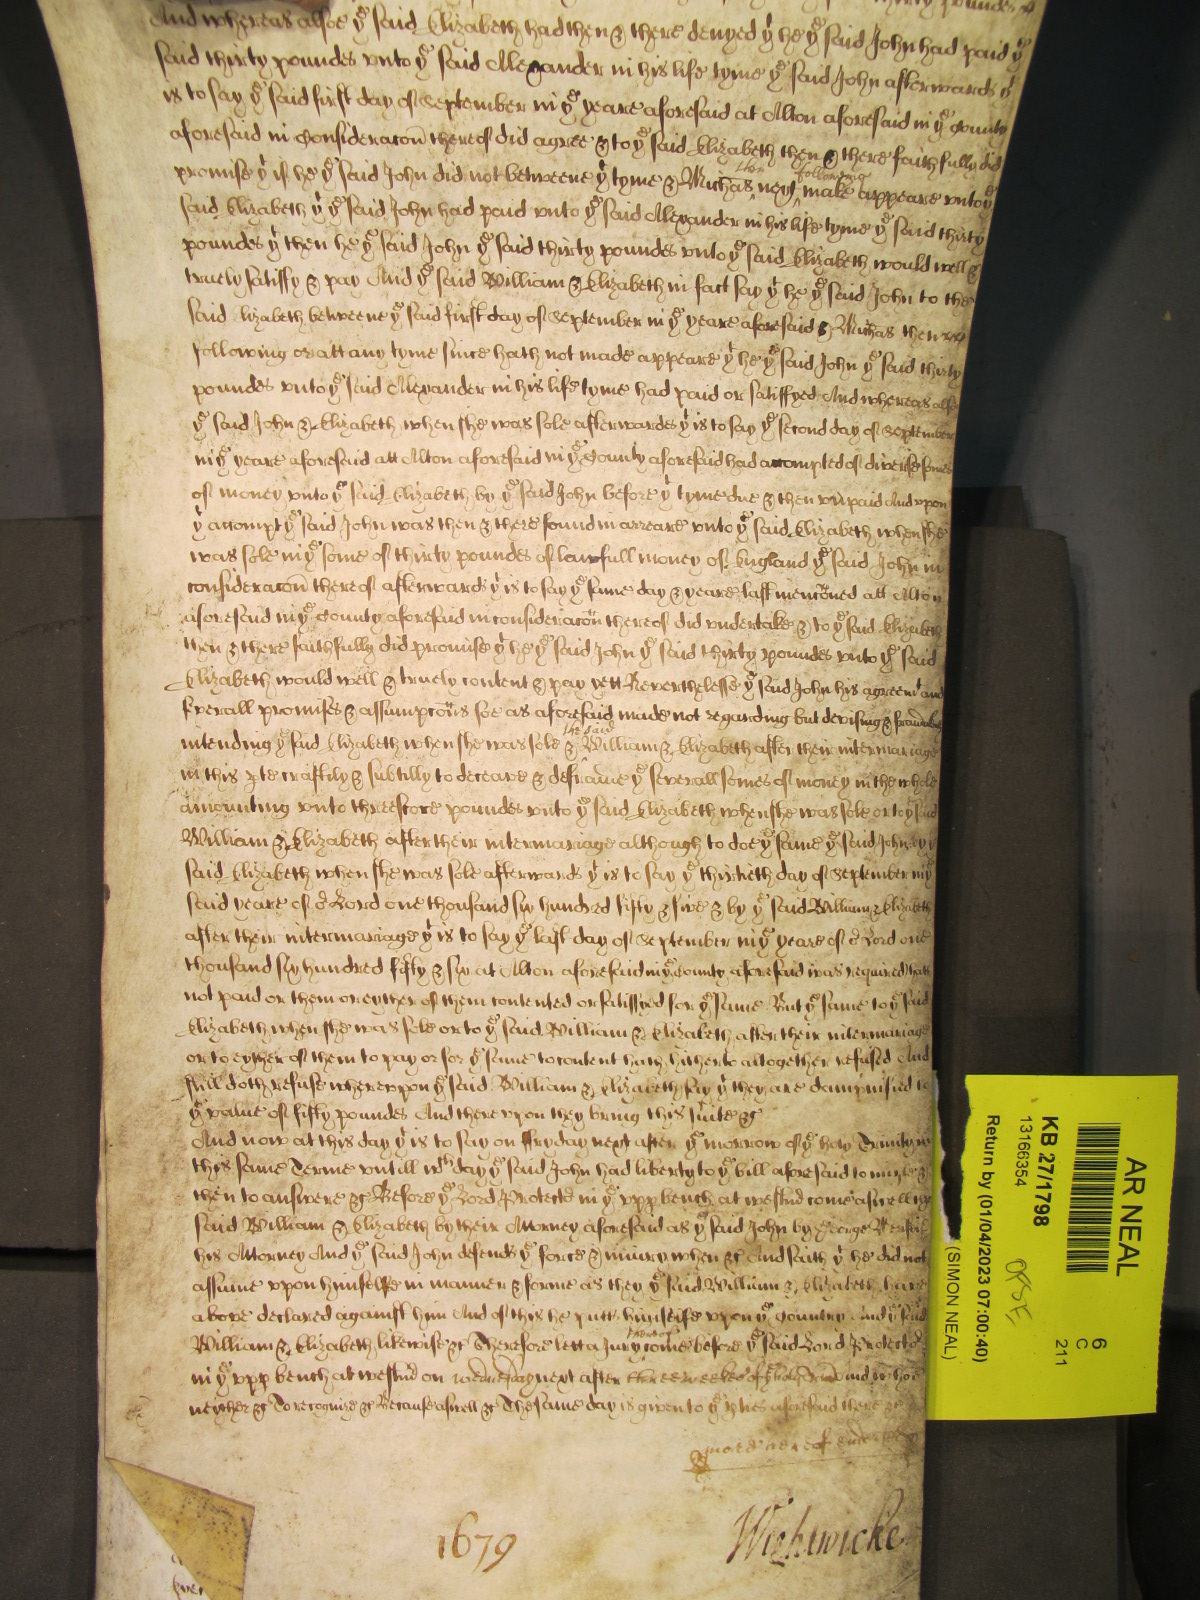 thirty poundes
And whereas alsoe yᵉ said Elizabeth had then & there denyed yᵗ he yᵉ said John had paid yᵉ
said thirty poundes unto yᵉ said Allexander in his life tyme yᵉ said John afterwards yᵗ
is to say yᵉ said first day of September in yᵉ yeare aforesaid at Alton aforesaid in yᵉ County
aforesaid in Consideracon thereof did agree & to yᵉ said Elizabeth then & there faithfully did
promise yᵗ if he yᵉ said John did not betweene yᵗ tyme & Michas then next following make appeare unto yᵉ
said Elizabeth yᵗ yᵉ said John had paid unto yᵉ said Alexander in his life tyme yᵉ said thirty
poundes yᵗ then he yᵉ said John yᵉ said thirty poundes unto yᵉ said Elizabeth would well &
truely satisfy & pay And yᵉ said William & Elizabeth in fact say yᵗ he yᵉ said John to the
said Elizabeth betweene yᵉ said first day of September in yᵉ yeare aforesaid & Michas then next
following or att any tyme since hath not made appeare yᵗ he yᵉ said John yᵉ said thirty
poundes unto yᵉ said Alexander in his life tyme had paid or satisfyed And whereas alsoe
yᵉ said John & Elizabeth when she was sole afterwardes yᵗ is to say yᵉ second day of September
in yᵉ yeare aforesaid att Alton aforesaid in yᵉ County aforesaid had accompted of diverse somes
of money unto yᵉ said Elizabeth by yᵉ said John before yᵗ tyme due & then unpaid And upon
yᵗ accompt yᵉ said John was then & there found in arreare unto yᵉ said Elizabeth when she
was sole in yᵉ some of thirty poundes of lawfull money of England yᵉ said John in
consideracon thereof afterwards yᵗ is to say yᵉ same day & yeare last mencōned att Alton
aforesaid in yᵉ County aforesaid in consideracōn thereof did undertake & to yᵉ said Elizabeth
then & there faithfully did promise yᵗ he yᵉ said John yᵉ said thirty poundes unto yᵉ said
Elizabeth would well & truely content & pay yett Neverthelesse yᵉ said John his agreemᵗ and
severall promises & assumpcōns soe as aforesaid made not regarding but devising &
intending yᵉ said Elizabeth when she was sole & the said William & Elizabeth after their intermariage
in this pte craftily & subtilly to deceave & defraude yᵉ severall somes of money in the whole
amounting unto threescore poundes unto yᵉ said Elizabeth when she was sole or to yᵉ said
William & Elizabeth after their intermariage although to doe yᵉ same yᵉ said John by yᵉ
said Elizabeth when she was sole afterwards yᵗ is to say yᵉ thirtieth day of September in yᵉ
said yeare of oʳ Lord one thousand six hundred fifty & five & by yᵉ said William & Elizabeth
after their intermariage yᵗ is to say yᵉ last day of September in yᵉ yeare of oʳ Lord one
thousand six hundred fifty & six at Alton aforesaid in yᵉ County aforesaid was required hath
not paid or them or eyther of them contented or satisfyed for yᵉ same But yᵉ same to yᵉ said
Elizabeth when she was sole or to yᵉ said William & Elizabeth after their intermariage
or to eyther of them to pay or for yᵉ same to content hath hitherto altogether refused And
still doth refuse whereupon yᵉ said William & Elizabeth say yᵗ they are dampnified to
yᵉ value of fifty poundes And thereupon they bring this suite &c
And now at this day yᵗ is to say on fryday next after yᵉ morrow of yᵉ holy Trinity in
this same Terme untill wᶜʰ day yᵉ said John had liberty to yᵉ bill aforesaid to imparle &
then to answere &c Before yᵉ Lord Protectoʳ in yᵉ upp bench at Westmʳ come aswell the
said William & Elizabeth by their Attorney aforesaid as yᵉ said John by George
his Attorney And yᵉ said John defends yᵉ force & iniury when &c And saith yᵗ he did not
assume upon himselfe in manner & forme as they yᵉ said William & Elizabeth have
above declared against him And of this he putts himselfe upon yᵉ Country And yᵉ said
William & Elizabeth likewise &c Therefore lett a Jury come before yᵉ said Lord Protector
in yᵉ upp bench at Westmʳ on wednesday next after three weekes of holy Trinity and who
neyther &c To recognize &c Because aswell &c The same day is given to yᵉ pties aforesaid there &c
1679
Wightwicke
AR NEAL
6
C
211
KB 27/1798
13166354
OPSE
Return by (01/04/2023 07:00:40)
(SIMON NEAL)